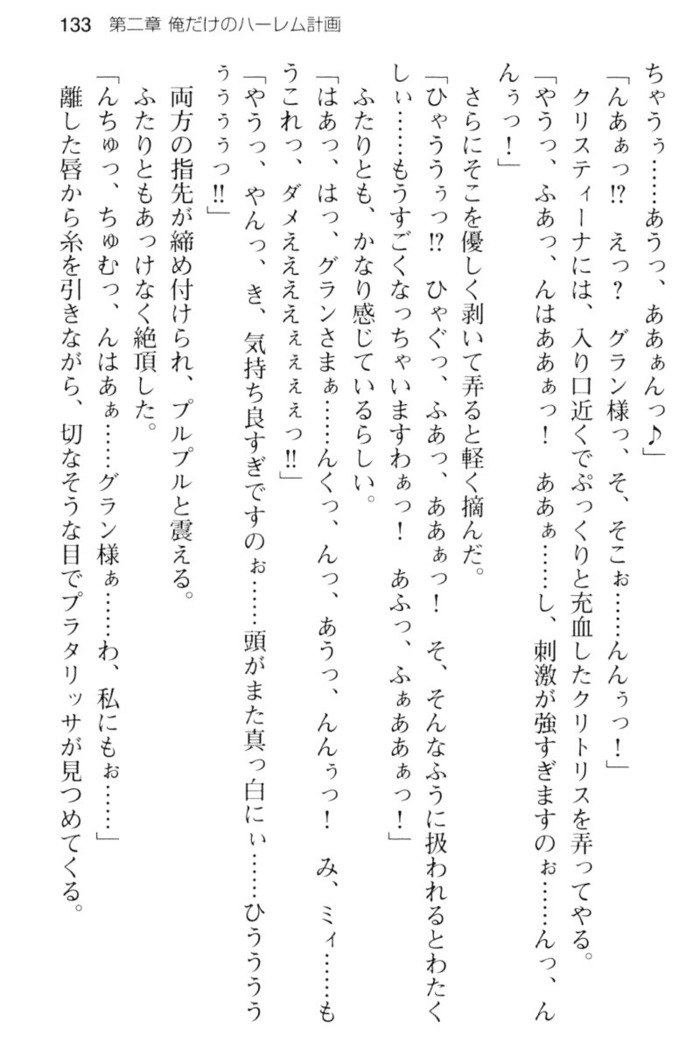 133 第二章 俺だけのハーレム計画
ちゃうぅ……あうっ、ああぁんっ♪」
「んあぁっ!? えっ? グラン様っ、そ、そこぉ……んんぅっ!」
クリスティーナには、入り口近くでぷっくりと充血したクリトリスを弄ってやる。
「やうっ、ふあっ、んはああぁっ! ああぁ……し、刺激が強すぎますのぉ……んっ、ん
んぅっ!」
さらにそこを優しく剥いて弄ると軽く摘んだ。
「ひゃううぅっ!? ひゃぐっ、ふあっ、ああぁっ! そ、そんなふうに扱われるとわたく
しぃ……もうすごくなっちゃいますわぁっ! あふっ、ふぁああぁっ!」
ふたりとも、かなり感じているらしい。
「はあっ、はっ、グランさまぁ……んくっ、んっ、あうっ、んんぅっ! み、ミィ……も
うこれっ、ダメええええぇぇぇぇっ!!」
「やうっ、やんっ、き、気持ち良すぎですのぉ……頭がまた真っ白にぃ……ひうううう
ぅぅぅぅっ!!」
両方の指先が締め付けられ、プルプルと震える。
ふたりともあっけなく絶頂した。
「んちゅっ、ちゅむっ、んはあぁ……グラン様ぁ……わ、私にもぉ……」
離した唇から糸を引きながら、切なそうな目でプラタリッサが見つめてくる。